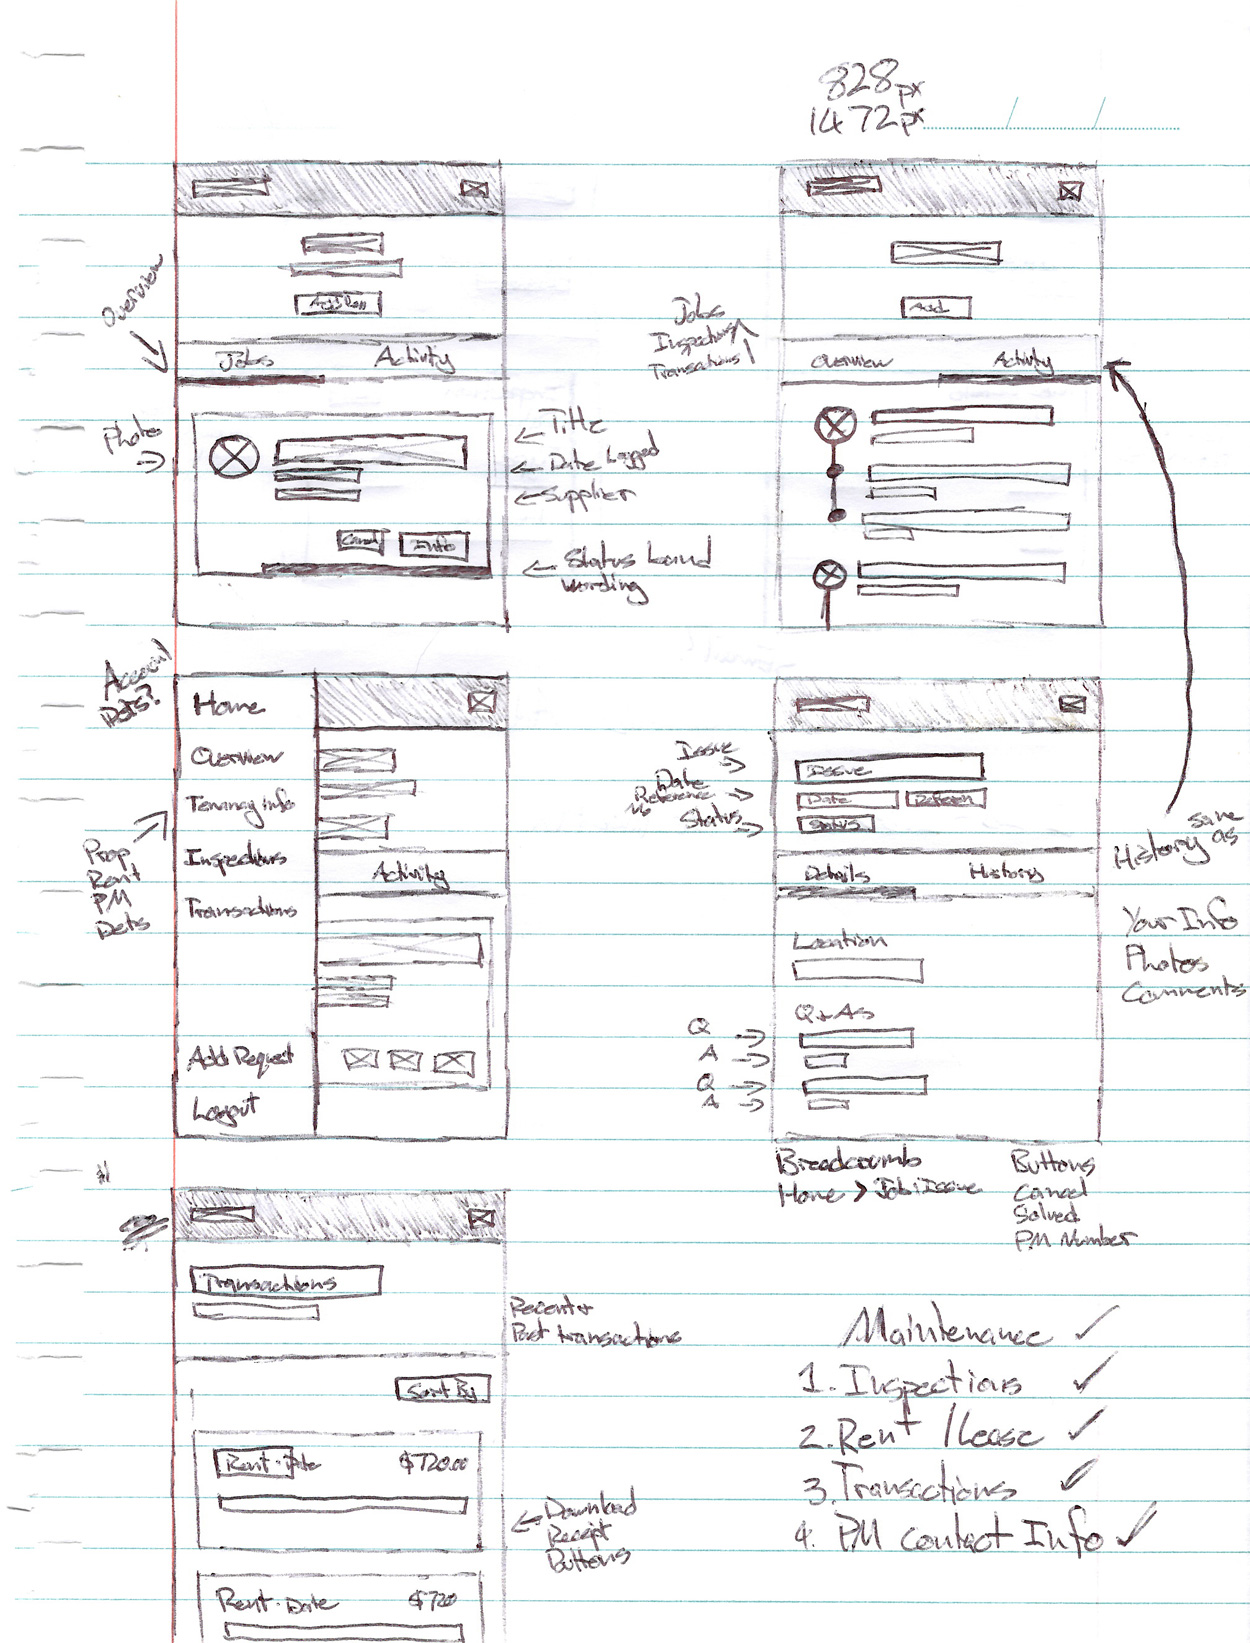 828px
1472px
Overview
Jobs
Activity
Photos
Title
Date Logged
Supplier
Cancel
Info
Status band
wording
Jobs
Inspections
Transactions
Add
Overview
Activity
Account
Dets?
Home
Overview
Tenancy info
Inspections
Transactions
Add Request
Logout
Activity
Prop
Rent
PM
Dets
Issue
Date
Reference
No
Status
Issue
Date
Status
Details
History
Location
Q+As
Q
A
Q
A
History same as
Your Info
Photos
Comments
Breadcrumb
Home > Job/Issue
Buttons
Cancel
Solved
PM Number
Transactions
Recent +
Past transactions
Sort By
Rent · Date $720.00
Download
Receipt
Buttons
Rent · Date $720
Maintenance ✓
1. Inspections ✓
2. Rent / Lease ✓
3. Transactions ✓
4. PM contact Info ✓